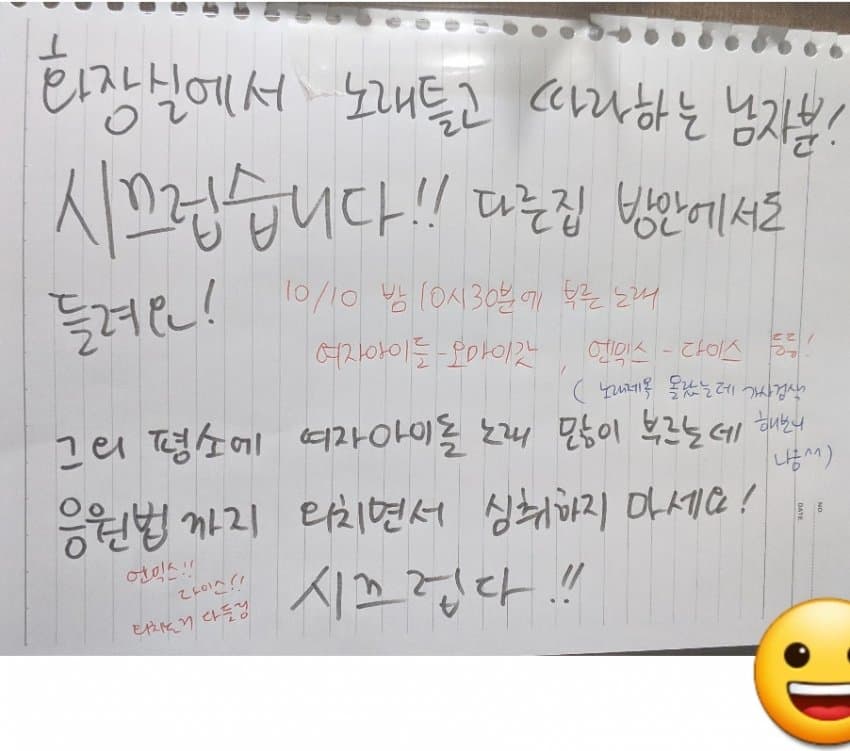 화장실에서 노래틀고 따라하는 남자분!
시끄럽습니다!! 다른집 방안에서도
들려요!
10/10 밤 10시30분에 부른 노래
여자아이들-오마이갓, 엔믹스-다이스 등등!
(노래제목 몰랐는데 가사검색
해보니
나옴^^)
그외 평소에 여자아이돌 노래 많이 부르는데
응원법까지 외치면서 심취하지 마세요!
엔믹스!!
다이스!!
시끄럽다!!
NO
DATE